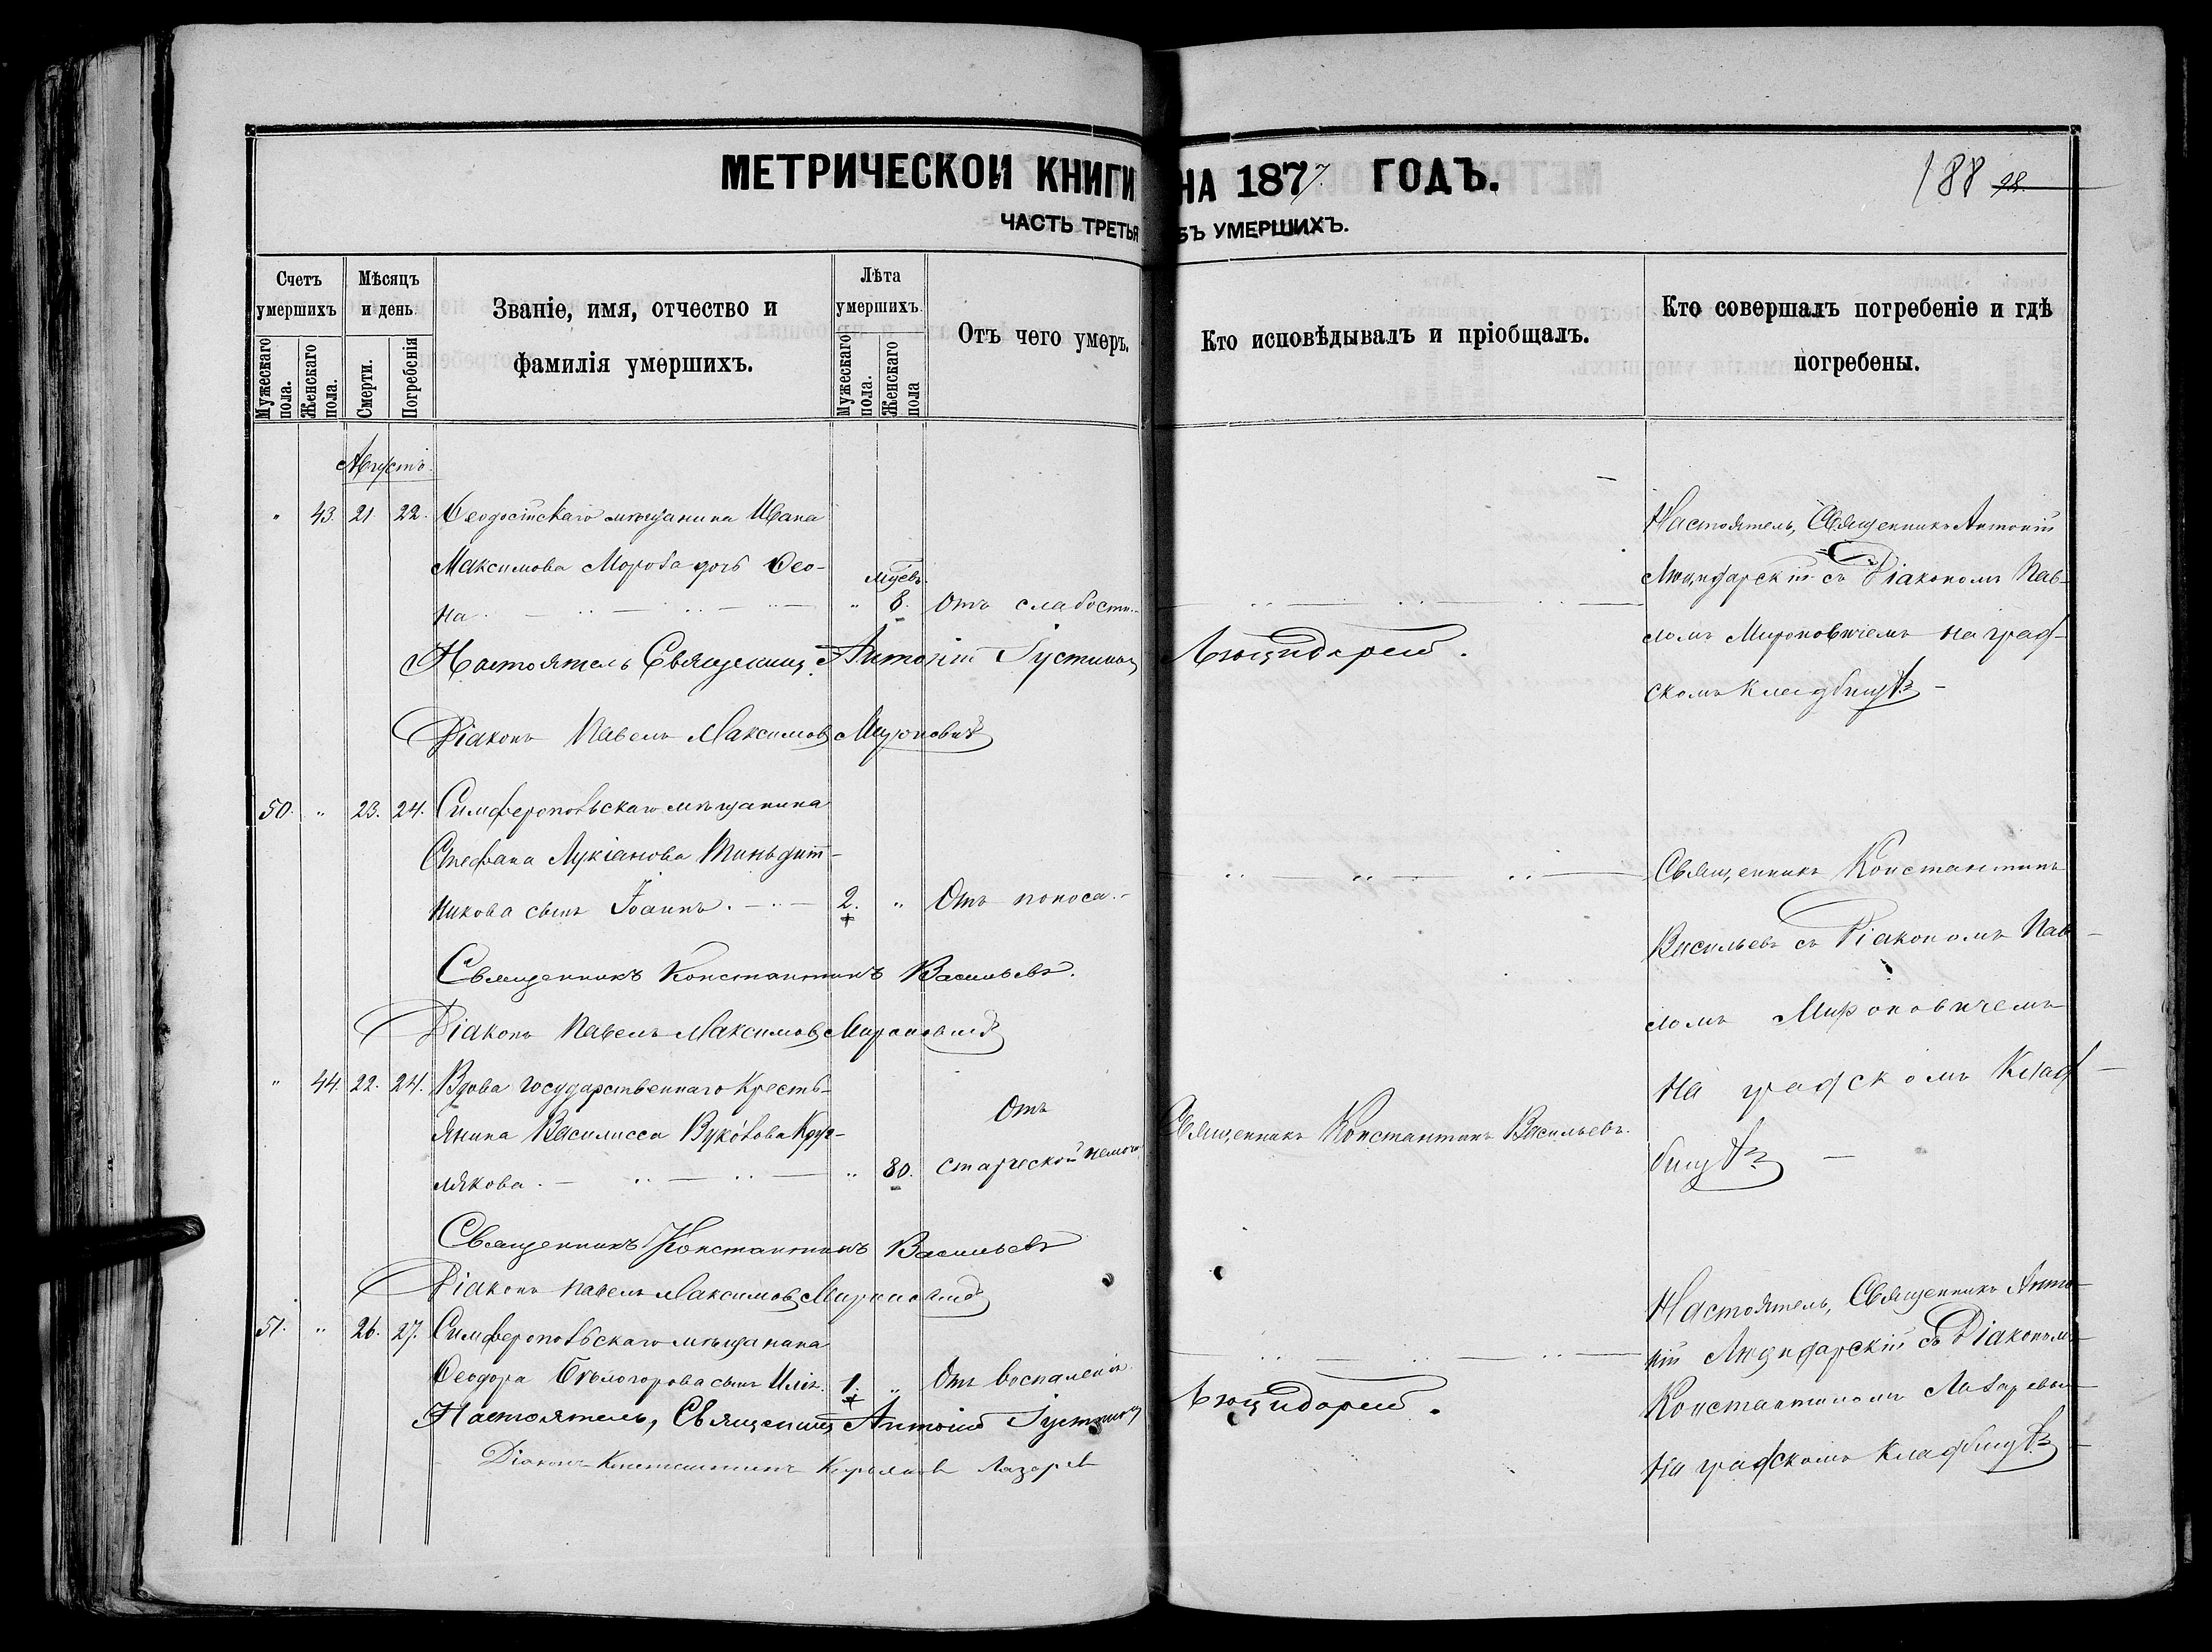 МЕТРИЧЕСКОЙ КНИГИ НА 1877 ГОДЪ.
188 98.
ЧАСТЬ ТРЕТЬЯ БЪ УМЕРШИХЪ.
Счетъ умершихъ
Мужескаго пола.
Женскаго пола.
Мѣсяцъ и день.
Смерти.
Погребенія
Званіе, имя, отчество и
фамилія умершихъ.
Лѣта умершихъ.
Мужескаго пола.
Женскаго пола
Отъ чего умеръ.
Кто исповѣдывалъ и пріобщалъ.
Кто совершалъ погребеніе и гдѣ
погребены.
Августъ
" 43. 21. 22. Ѳеодосійскаго мѣщанина Ивана
Максимова Мороза дочь Ѳео-
на
мцевъ
" 8. Отъ слабости.
Настоятель, Священникъ Антоній
Люцидарскій съ Діакономъ Пав-
ломъ Мироновичемъ на град-
скомъ кладбищѣ
Настоятель Священникъ Антоній Іустиновъ Люцидарскій.
Діаконъ Павелъ Максимовъ Мироновичъ
50. " 23. 24. Симферопольскаго мѣщанина
Стефана Лукіанова
никова сынъ Іоаннъ. 2. " Отъ поноса.
Священникъ Константинъ
Васильевъ съ Діакономъ Пав-
ломъ Мироновичемъ
на градскомъ клад-
бищѣ
Священникъ Константинъ Васильевъ.
Діаконъ Павелъ Максимовъ Мироновичъ
" 44. 22. 24. Вдова государственнаго кресть-
янина Василисса Вуколова Круг-
лякова. " 80. Отъ
старческой немощ
Священникъ Константинъ Васильевъ.
Священникъ Константинъ Васильевъ
Діаконъ Павелъ Максимовъ Мироновичъ
51. " 26. 27. Симферопольскаго мѣщанина
Ѳеодора Бѣлогорова сынъ Илія. 1. " Отъ воспаленія.
Настоятель, Священникъ Анто-
ній Люцидарскій съ Діакономъ
Константиномъ Лазаревымъ
на градскомъ кладбищѣ
Настоятель, Священникъ Антоній Іустиновъ Люцидарскій.
Діаконъ Константинъ Лазаревъ